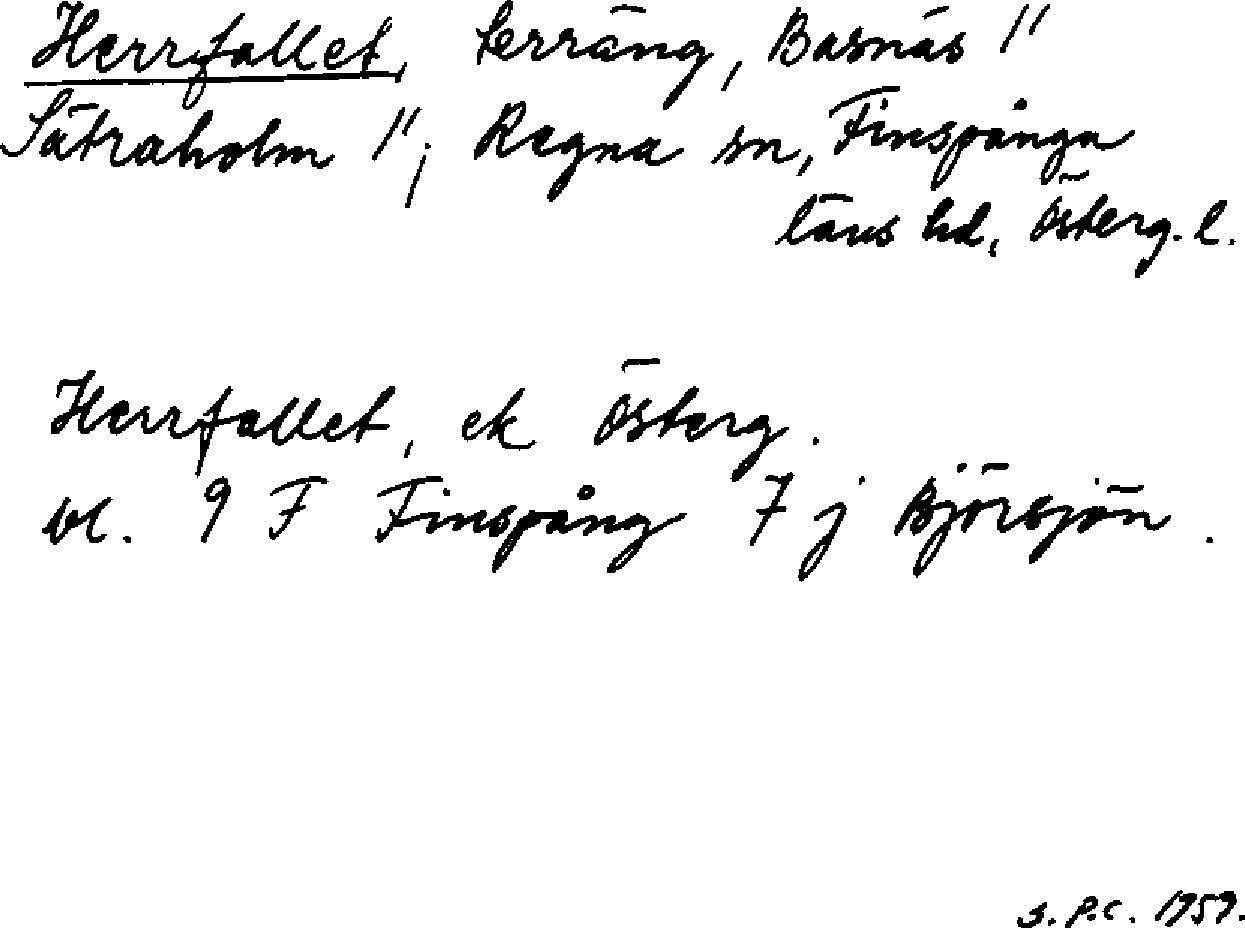 Herrfallet, terräng, Basnäs 1/1
Sätraholm 1/1; Regna sn, Finspånga
läns hd, Österg. l.
Herrfallet, ek Österg.
bl. 9 F Finspång 7 j Björsjön.
S. P.C. 1959.